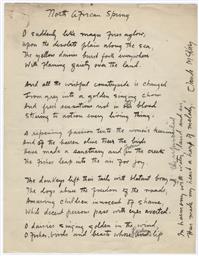 North African Spring
O suddenly like magic fires aglow,
Upon the desolate plain along the sea,
The yellow daisies burst forth everywhere
With flaming gaiety over the land.
And all the wistful countryside is changed
From grey into a golden singing choir
And fresh sensations rest in its blood
Stirring to action every living thing.
A repining passion tents the women's
of the heaven blue there the birds
have made a sanctuary and in the creek
The fishes leap into the air for joy
The donkeys lift their tails with blatant bray
The dogs abuse the freedom of the roads,
Amazing children innocent of shame,
While decent persons pass with eyes averted.
O daisies singing golden in the wind,
O fishes, birds and beasts whose
Has made my heart a harp of melody.
Claude McKay